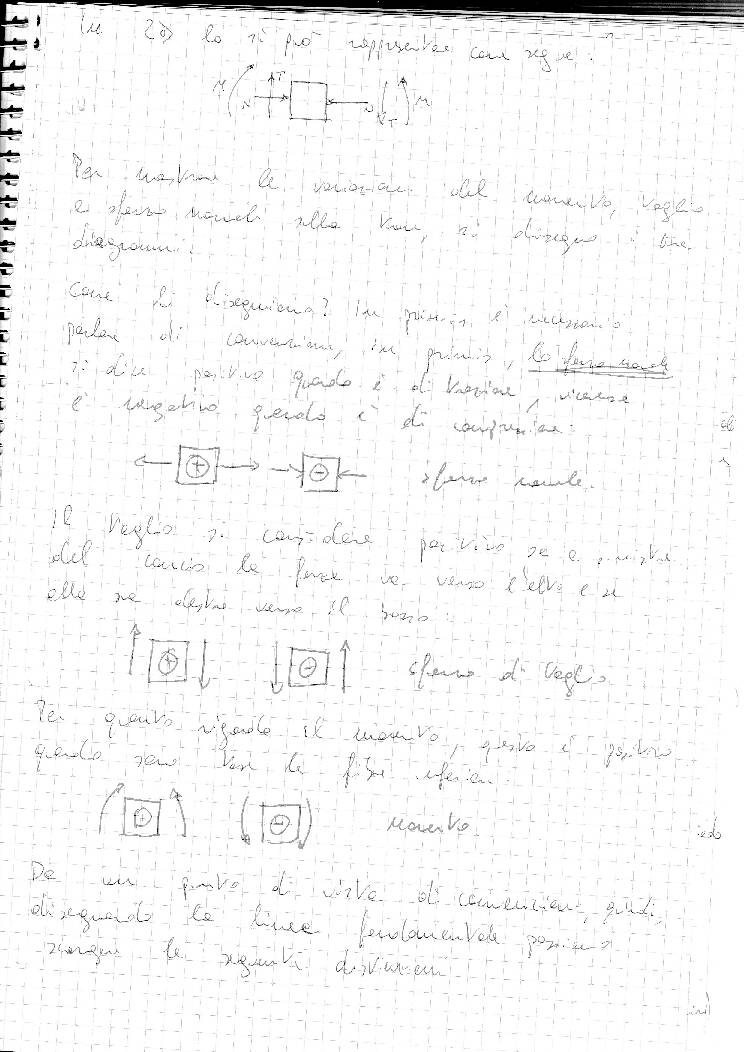 In 2D lo si può rappresentare come segue:
M N T N T M
Per mostrare le variazioni del momento, taglio
e sforzo normale sulla trave, si disegna i tre
diagrammi.
Come li disegniamo? In primis è necessario
parlare di convenzioni, in primis, lo sforzo normale
si dice positivo quando è di trazione, viceversa
è negativo quando è di compressione:
+ - sforzo normale.
Il taglio si considera positivo se a sinistra
del concio la forza va verso l'alto e se
alla sua destra verso il basso:
+ - sforzo di taglio
Per quanto riguarda il momento, questo è positivo
quando sono tese le fibre inferiori.
+ - momento
Da un punto di vista di convenzioni, quindi,
disegnando la linea fondamentale possiamo
scorgere le seguenti distinzioni